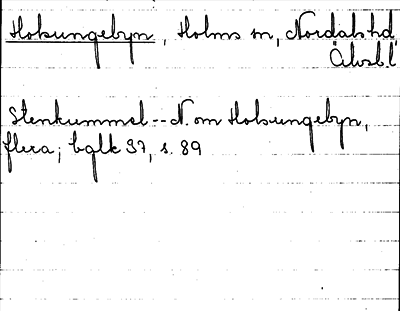 Holsungebyn, Holms sn, Nordals hd
Älvsb.l
Stenkummel -- N. om Holsungebyn,
flera; bglk 37, s. 89